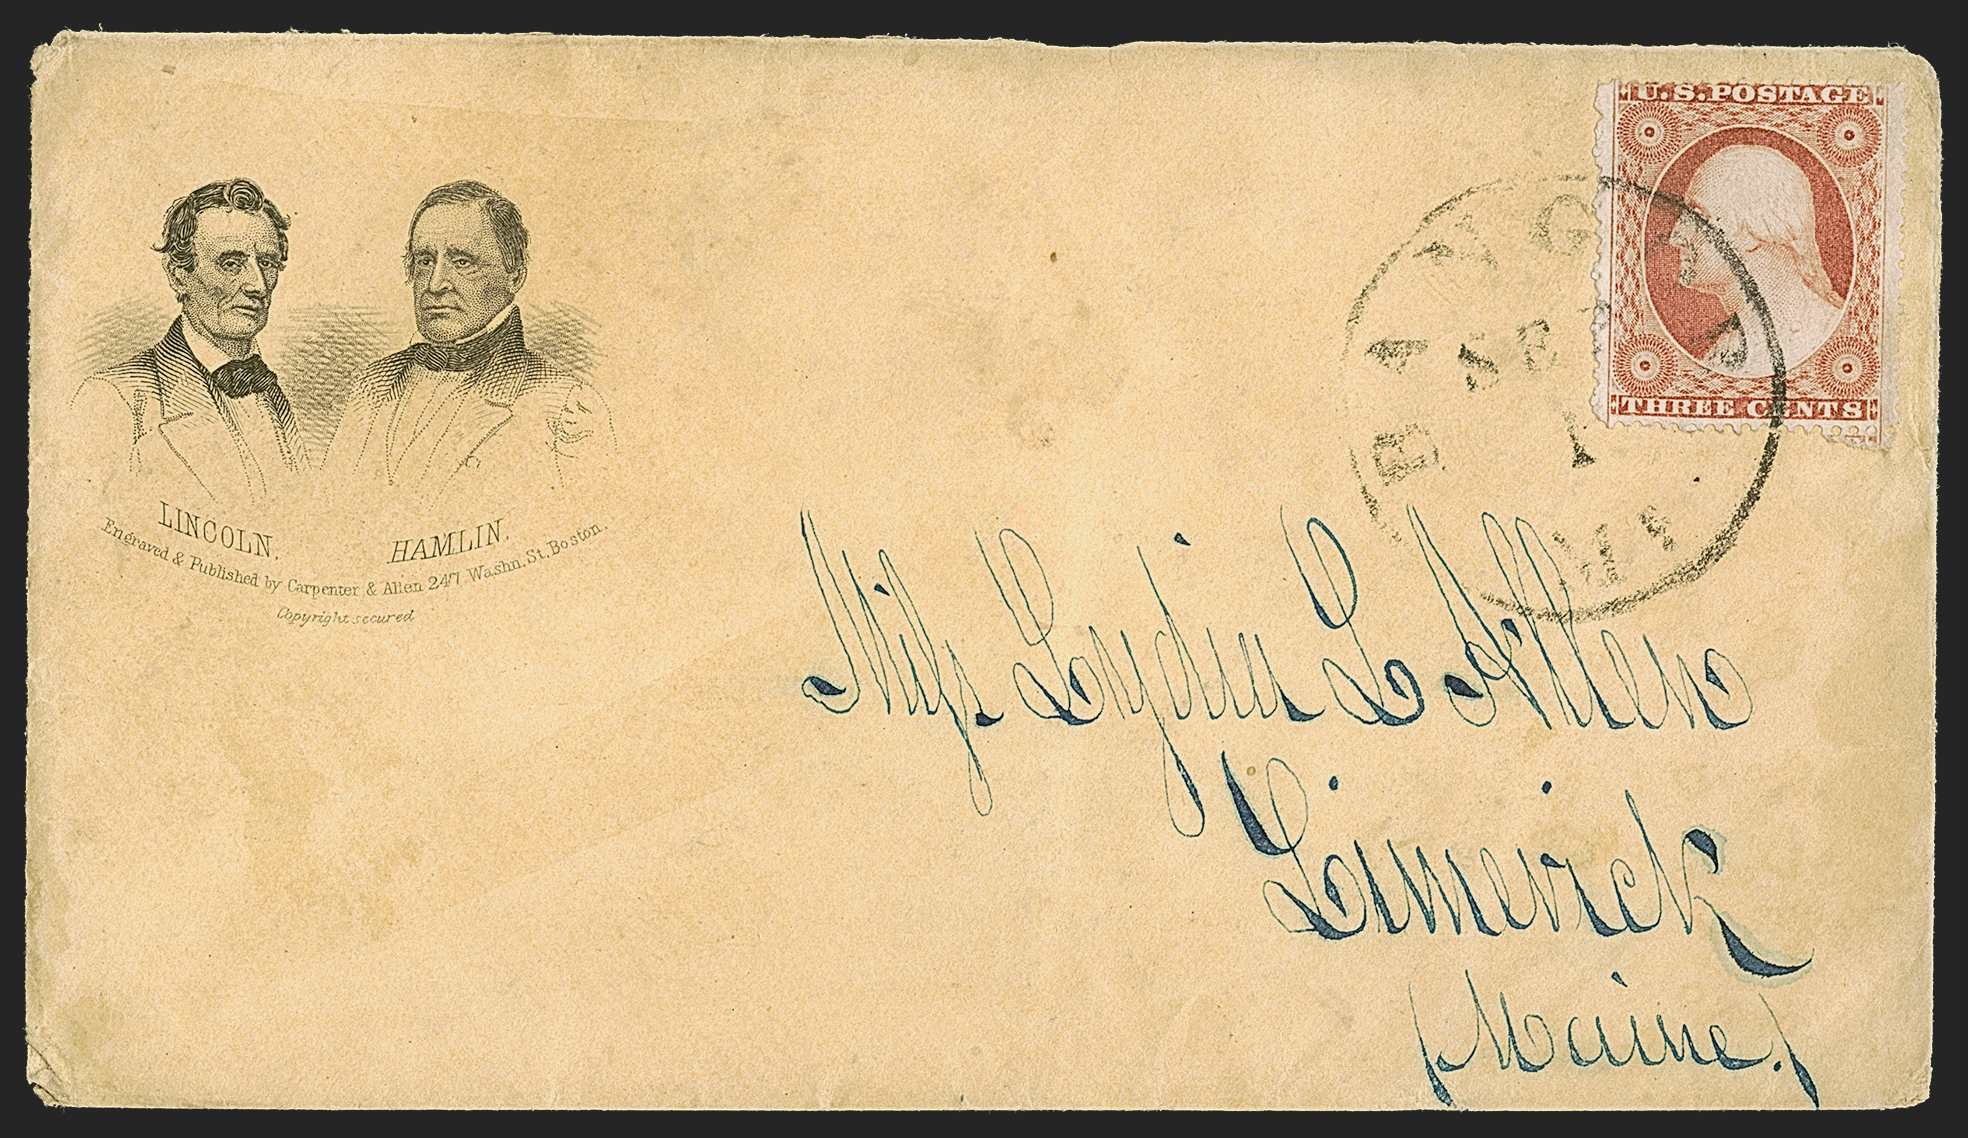 LINCOLN.
HAMLIN.
Engraved & Published by Carpenter & Allen 247 Washn. St. Boston.
Copyright secured
U.S. POSTAGE
THREE CENTS
BANGOR
SEP
1
Miſs Lydia L Allen
Limerick
(Maine.)